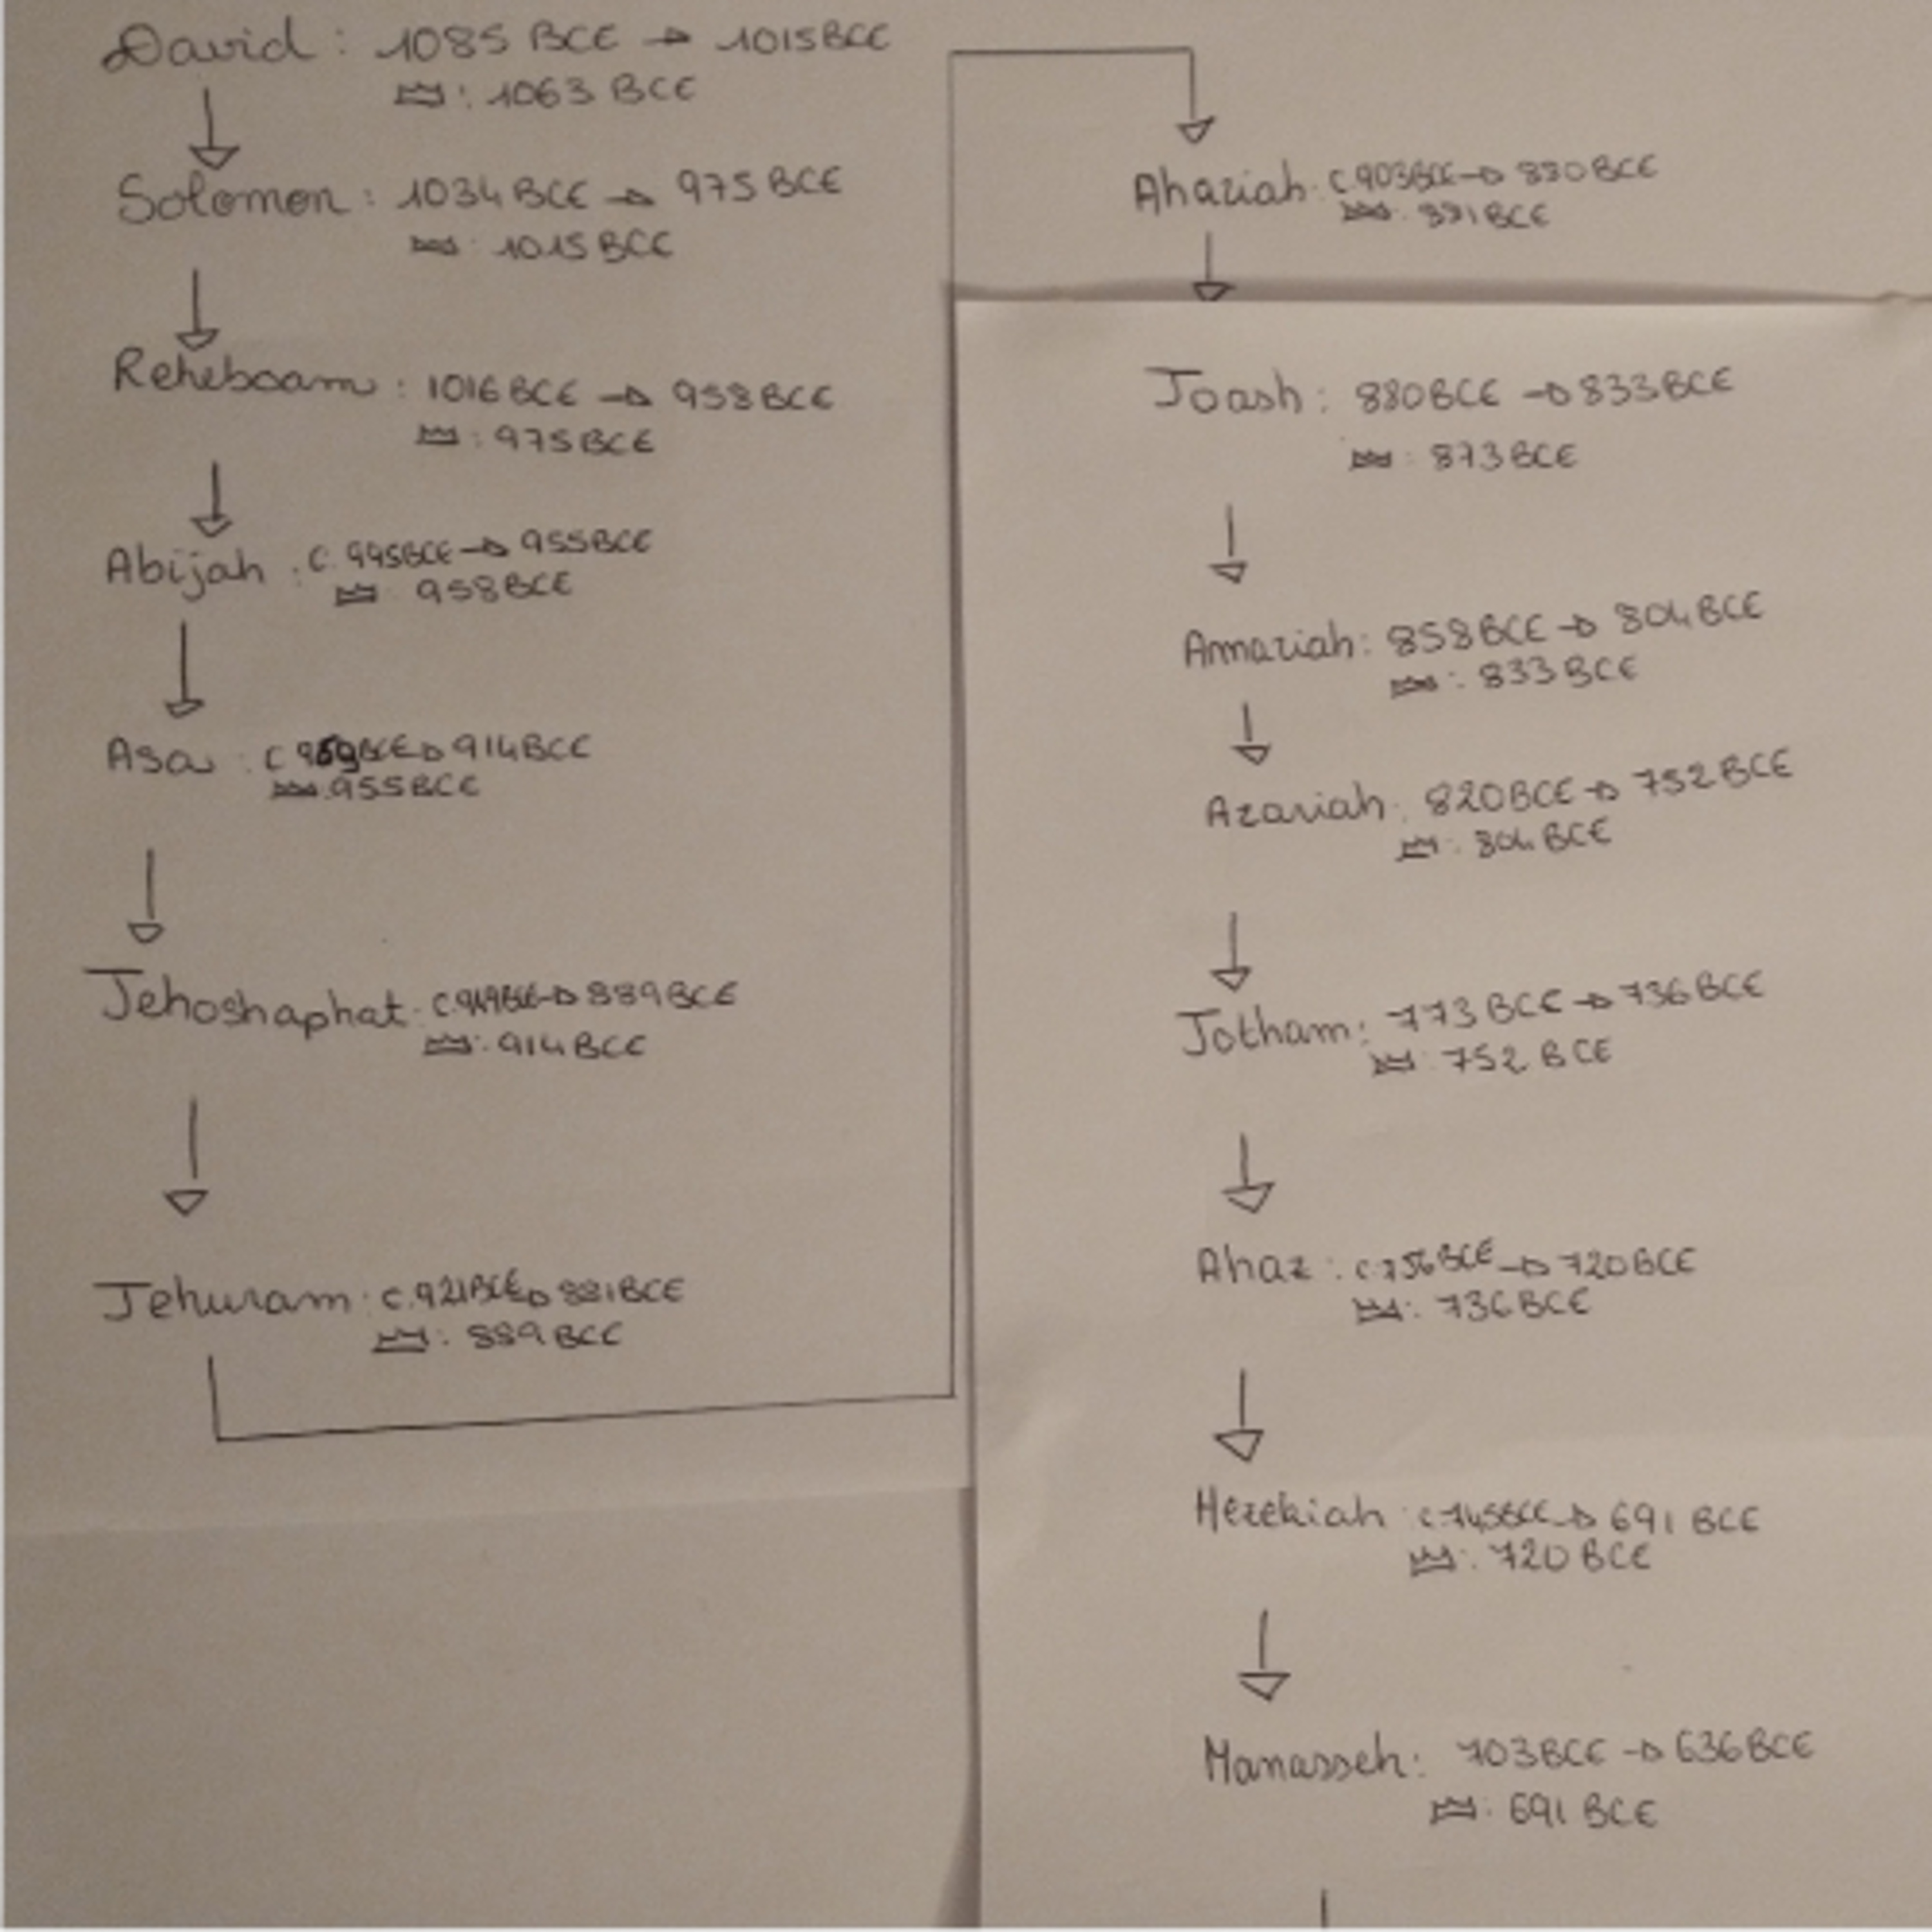 David : 1085 BCE → 1015 BCE
: 1063 BCE
Solomon : 1034 BCE → 975 BCE
: 1015 BCE
Reheboam : 1016 BCE → 958 BCE
: 975 BCE
Abijah : c. 995BCE → 955BCE
: 958BCE
Asa : c 959BCE → 914BCE
: 955BCE
Jehoshaphat : c.949BCE → 889BCE
: 914BCE
Jehuram : c.921BCE → 881BCE
: 889BCE
Ahaziah : c.903BCE → 880BCE
: 881BCE
Joash : 880BCE → 833BCE
: 873BCE
Amaziah : 858BCE → 804BCE
: 833BCE
Azariah : 820BCE → 752BCE
: 804BCE
Jotham : 773BCE → 736BCE
: 752BCE
Ahaz : c.756BCE → 720BCE
: 736BCE
Hezekiah : c.745BCE → 691 BCE
: 720 BCE
Manasseh : 703BCE → 636BCE
: 691 BCE